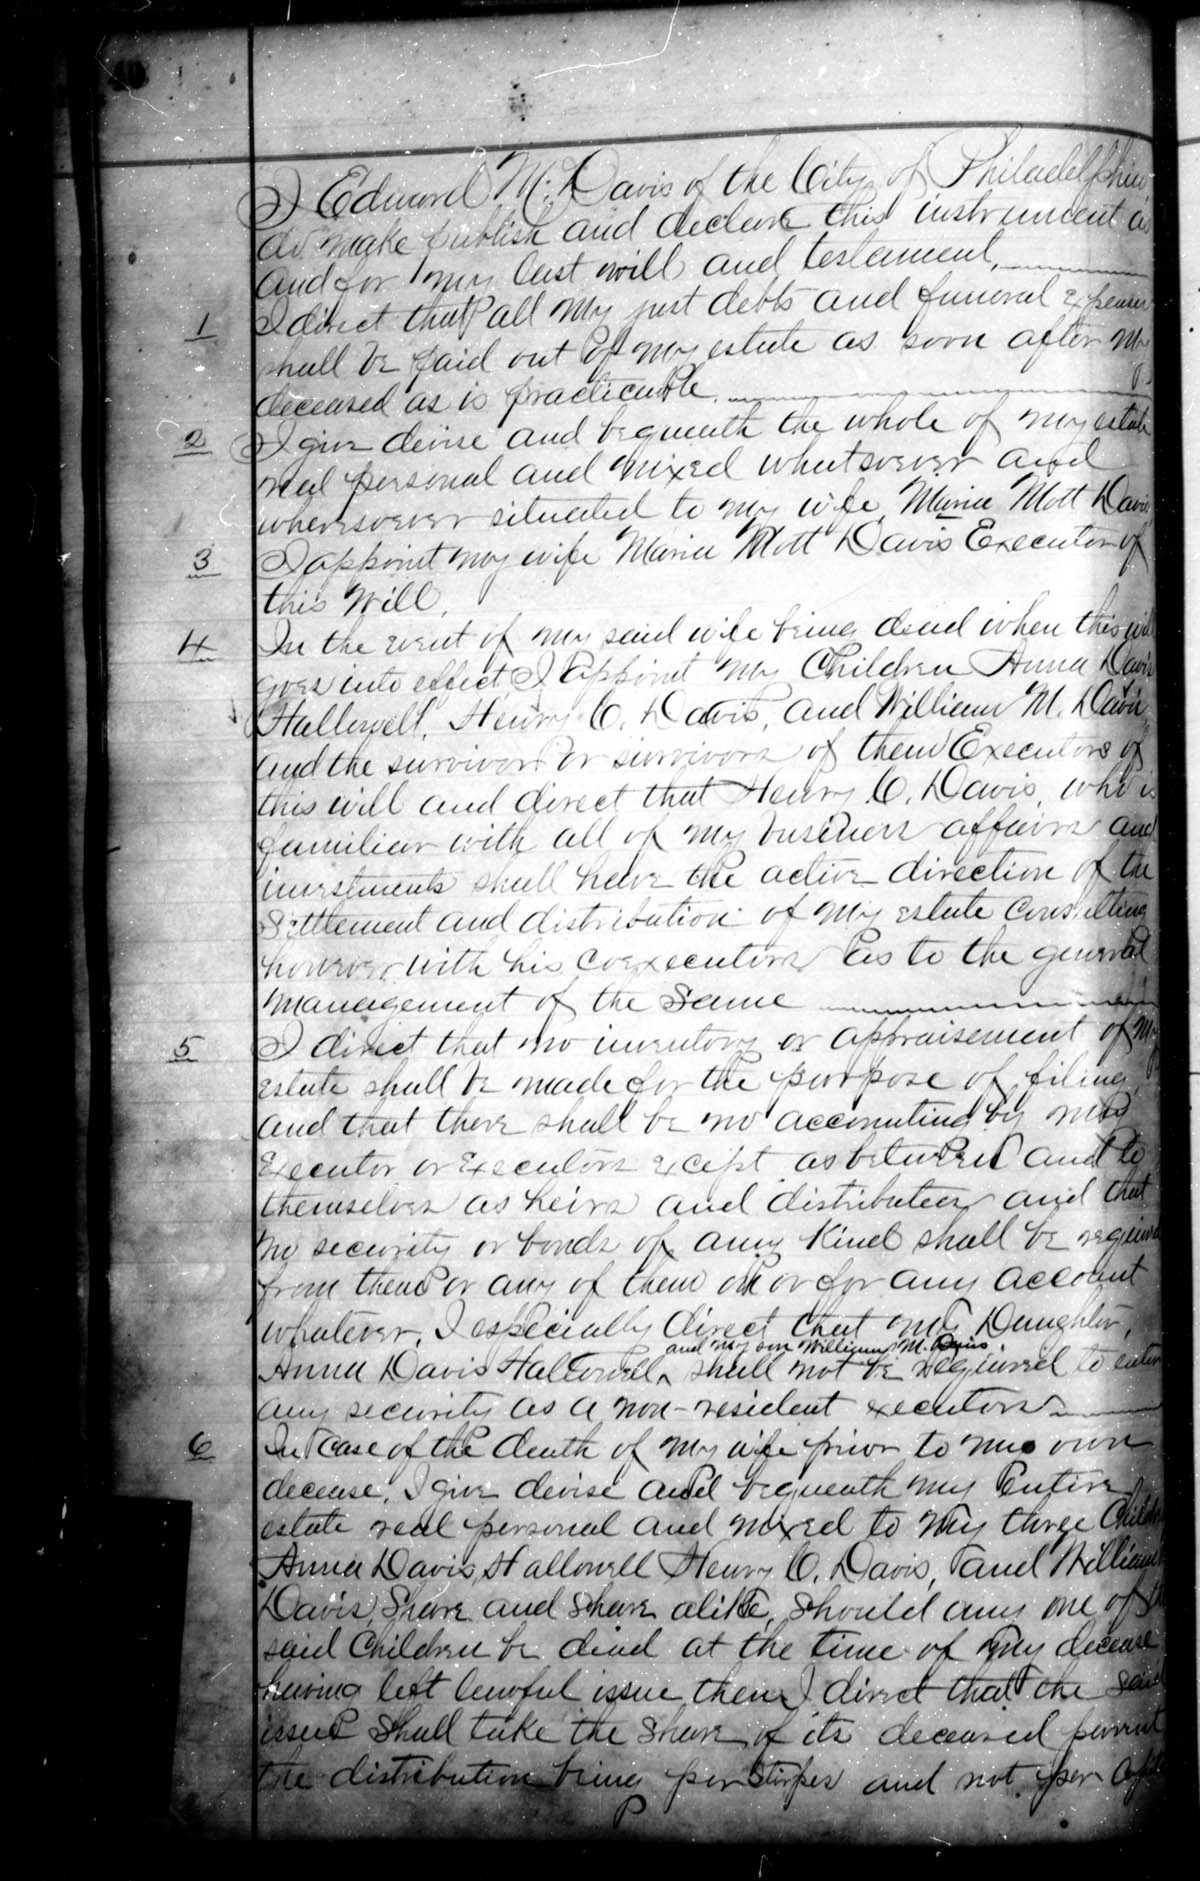 I Edward M. Davis of the City of Philadelphia
do make publish and declare this instrument as
and for my last will and testament,
1 I direct that all my just debts and funeral expenses
shall be paid out of my estate as soon after my
deceased as is practicable.
2 I give devise and bequeath the whole of my estate
real personal and mixed whatsoever and
wheresoever situated to my wife, Maria Mott Davis,
3 I appoint my wife Maria Mott Davis Executor of
this Will.
4 In the event of my said wife being dead when this will
goes into effect, I appoint my Children Anna Davis
Hallowell, Henry C. Davis, and William M. Davis,
and the survivor or survivors of them Executors of
this will and direct that Henry C. Davis, who is
familiar with all of my business affairs and
investments shall have the active direction of the
settlement and distribution of my estate consulting
however with his coexecutors as to the general
management of the same
5 I direct that no inventory or appraisement of my
estate shall be made for the purpose of filing,
and that there shall be no accounting by my
Executor or Executors except as between and to
themselves as heirs and distributees and that
no security or bonds of any kind shall be required
from them or any of them on or for any account
whatever, I especially direct that my Daughter,
and my son William M. Davis
Anna Davis Hallowell, shall not be required to enter
any security as a non-resident executors
6 In case of the death of my wife prior to my own
decease, I give devise and bequeath my entire
estate real personal and mixed to my three Children
Anna Davis, Hallowell Henry C. Davis, and William
Davis, share and share alike, should any one of
said Children be dead at the time of my decease
having left lawful issue then I direct that the said
issue shall take the share of its deceased parent
the distribution being per stirpes and not per